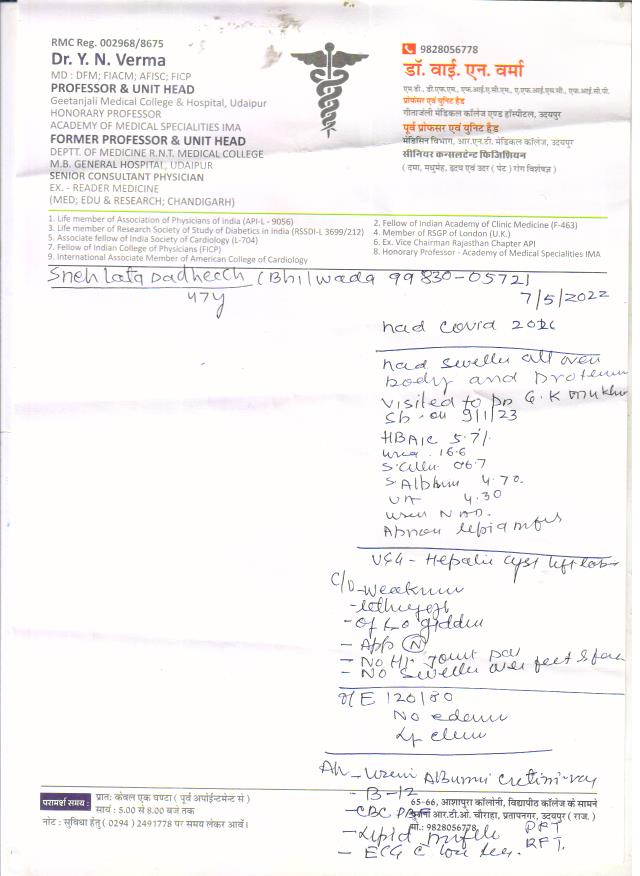 RMC Reg. 002968/8675
Dr. Y. N. Verma
MD : DFM; FIACM; AFISC; FICP
PROFESSOR & UNIT HEAD
Geetanjali Medical College & Hospital, Udaipur
HONORARY PROFESSOR
ACADEMY OF MEDICAL SPECIALITIES IMA
FORMER PROFESSOR & UNIT HEAD
DEPTT. OF MEDICINE R.N.T. MEDICAL COLLEGE
M.B. GENERAL HOSPITAL, UDAIPUR
SENIOR CONSULTANT PHYSICIAN
EX. - READER MEDICINE
(MED; EDU & RESEARCH; CHANDIGARH)
9828056778
डॉ. वाई. एन. वर्मा
एम.डी., डी.एफ.एम., एफ.आई.ए.सी.एम., ए.एफ.आई.एस.सी., एफ.आई.सी.पी.
प्रोफेसर एवं यूनिट हैड
गीतांजली मेडिकल कॉलेज एण्ड हॉस्पीटल, उदयपुर
पूर्व प्रोफसर एवं युनिट हैड
मेडिसिन विभाग, आर.एन.टी. मेडिकल कॉलेज, उदयपुर
सीनियर कन्सलटेन्ट फिजिशियन
( दमा, मधुमेह, हृदय एवं उदर ( पेट ) रोग विशेषज्ञ )
1. Life member of Association of Physicians of india (API-L - 9056)
3. Life member of Research Society of Study of Diabetics in india (RSSDI-L 3699/212)
5. Associate fellow of India Society of Cardiology (L-704)
7. Fellow of Indian College of Physicians (FICP)
9. International Associate Member of American College of Cardiology
2. Fellow of Indian Academy of Clinic Medicine (F-463)
4. Member of RSGP of London (U.K.)
6. Ex. Vice Chairman Rajasthan Chapter API
8. Honorary Professor - Academy of Medical Specialities IMA
Sneh Lata Dadheech (Bhilwada 99830-05721
47y
7/5/2022
had covid
had swellin all over
body and
visited to Dr G.K
on 9/1/23
HBA1C 5.7%
urea 16.6
06.7
S Albumin 4.70
UA 4.30
NAD.
USG - Hepatic cyst left lobe
C/O - weakness
- App (N)
- No joint
- No swelling over feet & face
O/E 120/80
No edema
Albumin
- B-12
- CBC
- Lipid profile
PFT
RFT.
- ECG
परामर्श समय :
प्रातः केवल एक घण्टा ( पूर्व अपॉइन्टमेन्ट से )
सायं : 5.00 से 8.00 बजे तक
नोट : सुविधा हेतु ( 0294 ) 2491778 पर समय लेकर आवें।
65-66, आशापुरा कॉलोनी, विद्यापीठ कॉलेज के सामने
आर.टी.ओ. चौराहा, प्रतापनगर, उदयपुर ( राज. )
मो.: 9828056778